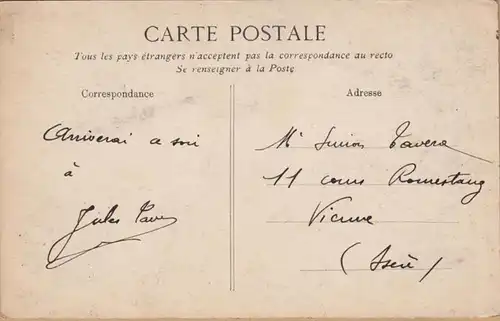 CARTE POSTALE
Tous les pays étrangers n'acceptent pas la correspondance au recto
Se renseigner à la Poste
Correspondance
Adresse
Arriverai ce soir
à
Jules Tavera
Mr Simon Tavera
11 cours Romestang
Vienne
(Isère)